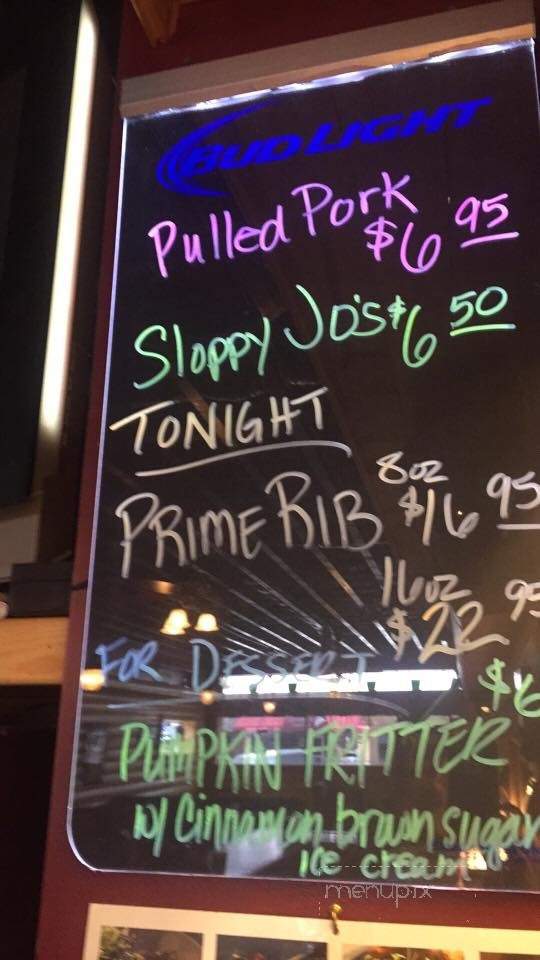 BUD LIGHT
Pulled Pork
$6 95
Sloppy Jo's $6 50
TONIGHT
8oz
PRIME RIB $16 95
16oz
$22 95
FOR DESSERT
$6
PUMPKIN FRITTER
w/ Cinnamon brown sugar
ice cream
menupix